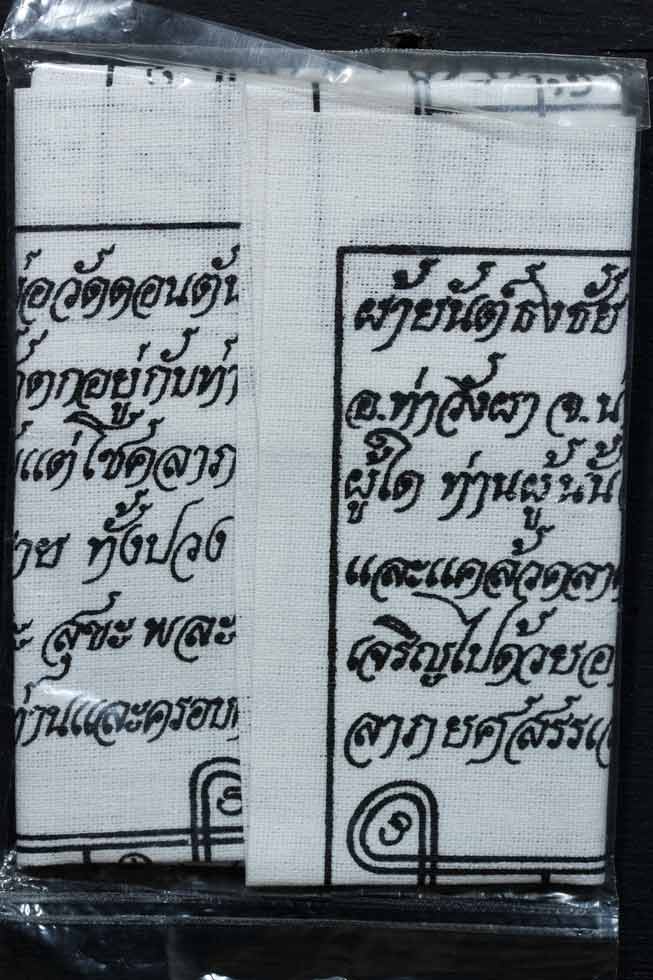 วัดดอนตัน
ตกอยู่กับท่า
แต่โชคลาภ
ทั้งปวง
สุขะ พละ
ท่านและครอบ
ผ้ายันต์ธงชัย
อ.ท่าวังผา จ.น
ผู้ใด ท่านผู้นั้น
และแคล้วคลาด
เจริญไปด้วยอ
ลาภ ยศ สรรเ